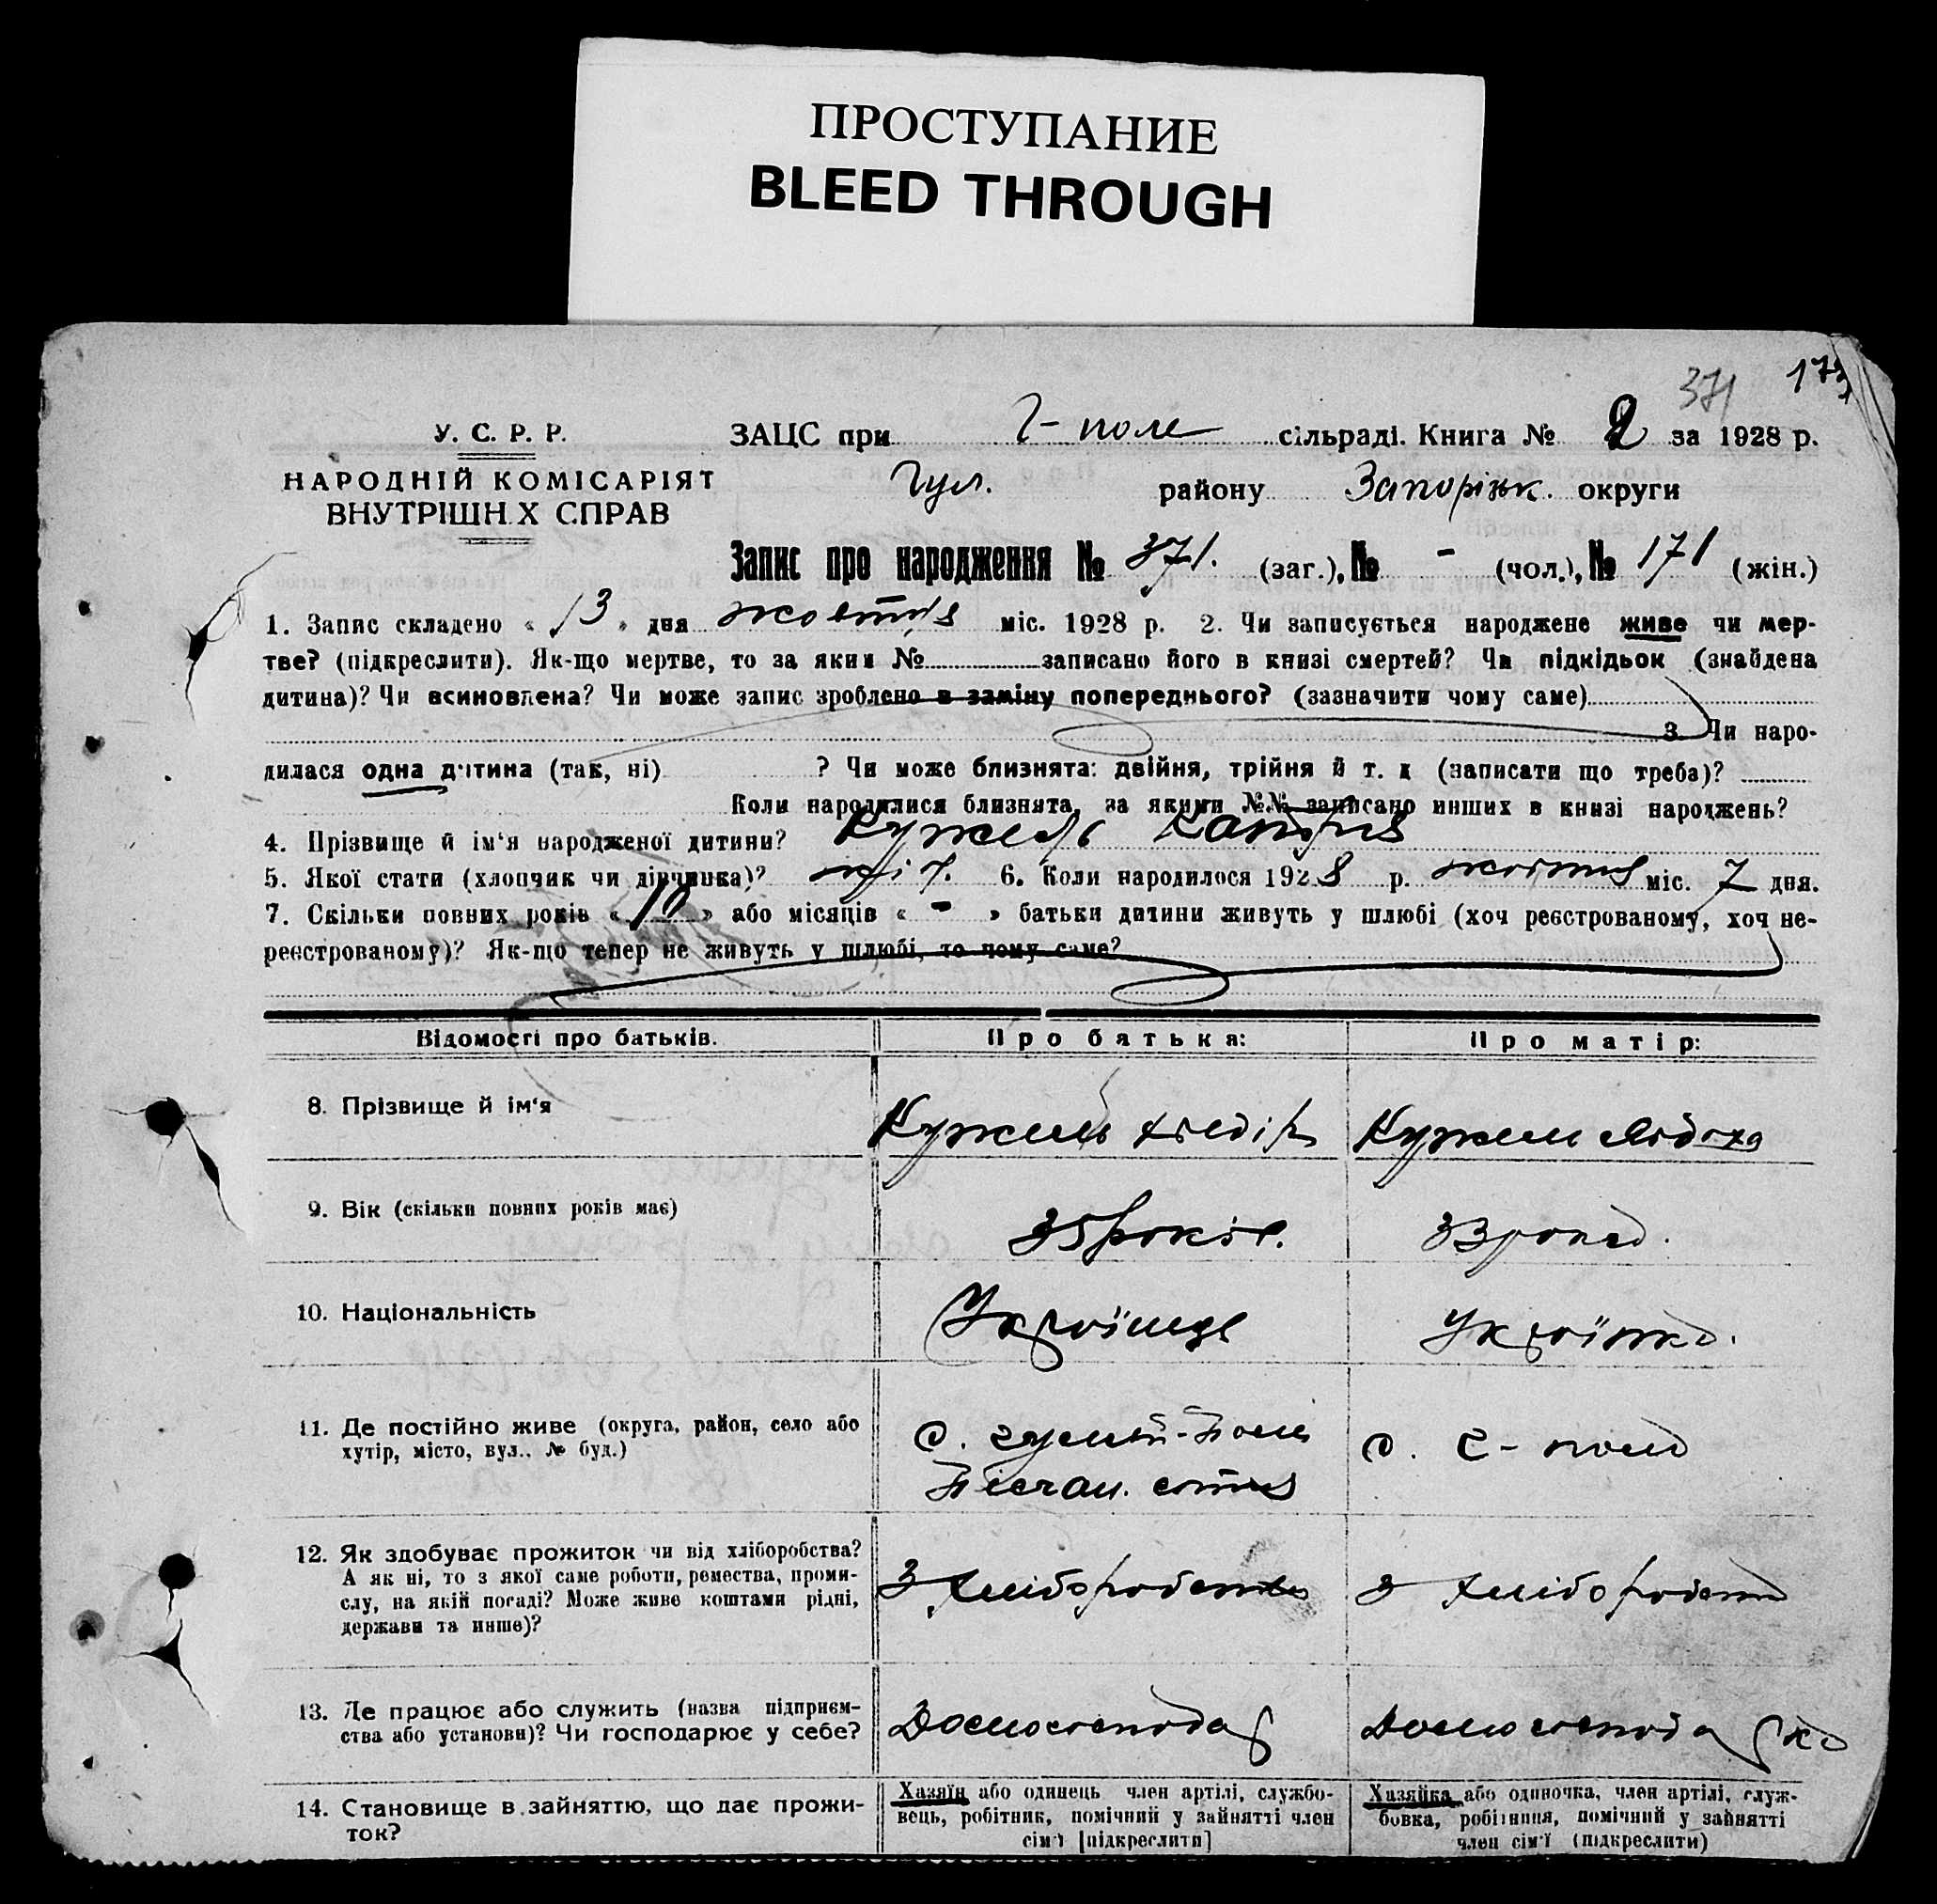 ПРОСТУПАНИЕ
BLEED THROUGH
371
173
У. С. Р. Р.
НАРОДНІЙ КОМІСАРІЯТ
ВНУТРІШН.Х СПРАВ
ЗАЦС при Г-поле сільраді. Книга № 2 за 1928 р.
Гул. району Запоріжк. округи
Запис про народження № 371. (заг.), № - (чол.), № 171 (жін.)
1. Запис складено « 13 » дня жовтня міс. 1928 р. 2. Чи записується народжене живе чи мер-
тве? (підкреслити). Як-що мертве, то за яким № записано його в книзі смертей? Чи підкідьок (знайдена
дитина)? Чи всиновлена? Чи може запис зроблено в заміну попереднього? (зазначити чому саме)
3. Чи наро-
дилася одна дитина (так, ні) ? Чи може близнята: двійня, трійня й т. д (записати що треба)?
Коли народилися близнята, за якими №№ записано инших в книзі народжень?
4. Прізвище й ім'я народженої дитини? Кужель
5. Якої стати (хлопчик чи дівчинка)? 6. Коли народилося 1928 р. жовтня міс. 7 дня.
7. Скільки повних років « 10 » або місяців « - » батьки дитини живуть у шлюбі (хоч реєстрованому, хоч не-
реєстрованому)? Як-що тепер не живуть у шлюбі, то чому саме?
Відомості про батьків.
Про батька:
Про матір:
8. Прізвище й ім'я
Кужель Хведір
Кужель
9. Вік (скільки повних років має)
35 років.
33 роки.
10. Національність
Українець
Українка.
11. Де постійно живе (округа, район, село або
хутір, місто, вул.. № буд.)
с. Гуляй-Поле
Песчан. сотня
с. Г-поле
12. Як здобуває прожиток чи від хліборобства?
А як ні, то з якої саме роботи, ремества, проми-
слу, на якій посаді? Може живе коштами рідні,
держави та инше)?
З хліборобства
З хліборобства
13. Де працює або служить (назва підприєм-
ства або установи)? Чи господарює у себе?
Домогосподар
Домогосподарка
14. Становище в зайняттю, що дає прожи-
ток?
Хазяїн або одинець член артілі, службо-
вець, робітник, помічний у зайнятті член
сім'ї [підкреслити]
Хазяйка або одиночка, член артілі, служ-
бовка, робітниця, помічний у зайнятті
член сім'ї (підкреслити)